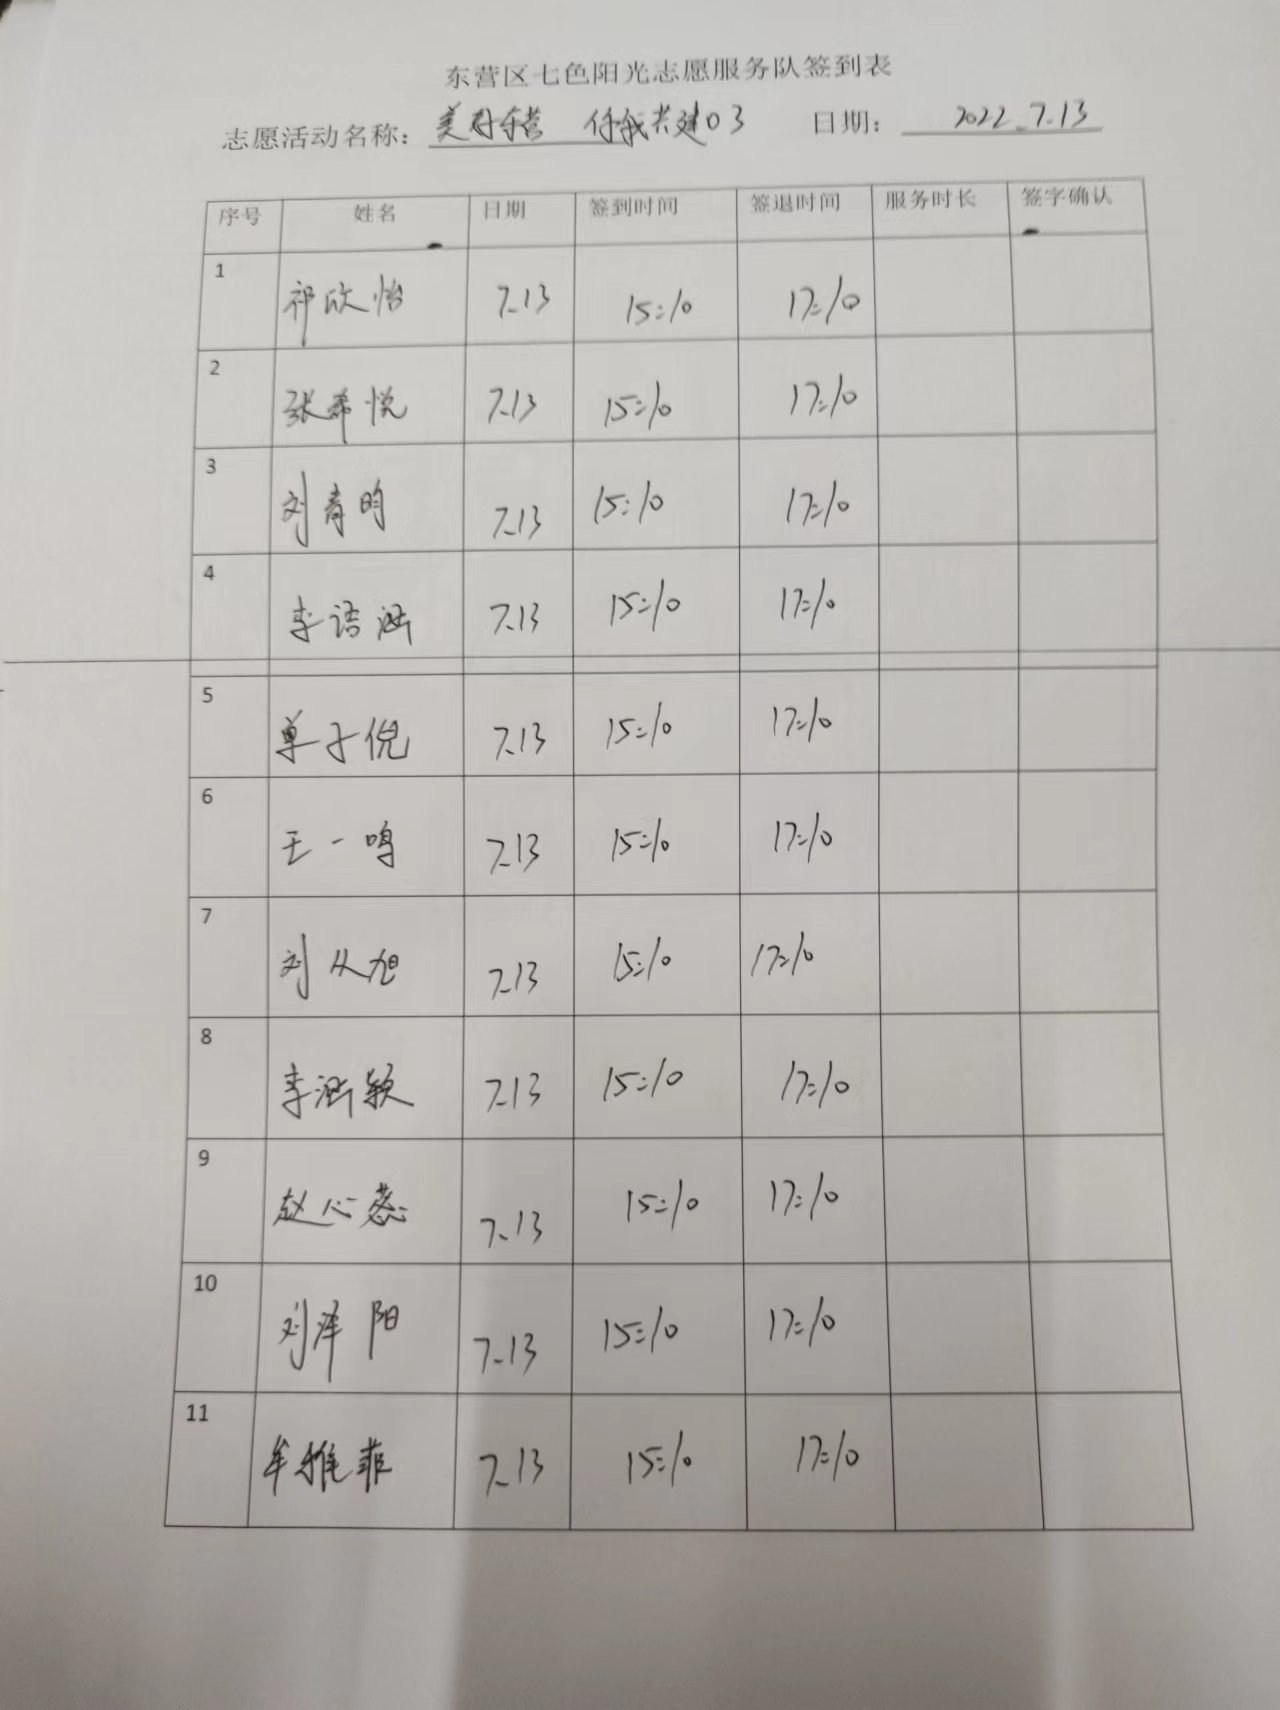 东营区七色阳光志愿服务队签到表
志愿活动名称：美好东营 你我共建03 日期：2022.7.13
序号 姓名 日期 签到时间 签退时间 服务时长 签字确认
1 祁欣怡 7.13 15:10 17:10
2 张希悦 7.13 15:10 17:10
3 刘青昀 7.13 15:10 17:10
4 李语涵 7.13 15:10 17:10
5 单子倪 7.13 15:10 17:10
6 王一鸣 7.13 15:10 17:10
7 刘从旭 7.13 15:10 17:10
8 李涵颖 7.13 15:10 17:10
9 赵心蕊 7.13 15:10 17:10
10 刘泽阳 7.13 15:10 17:10
11 牟雅菲 7.13 15:10 17:10